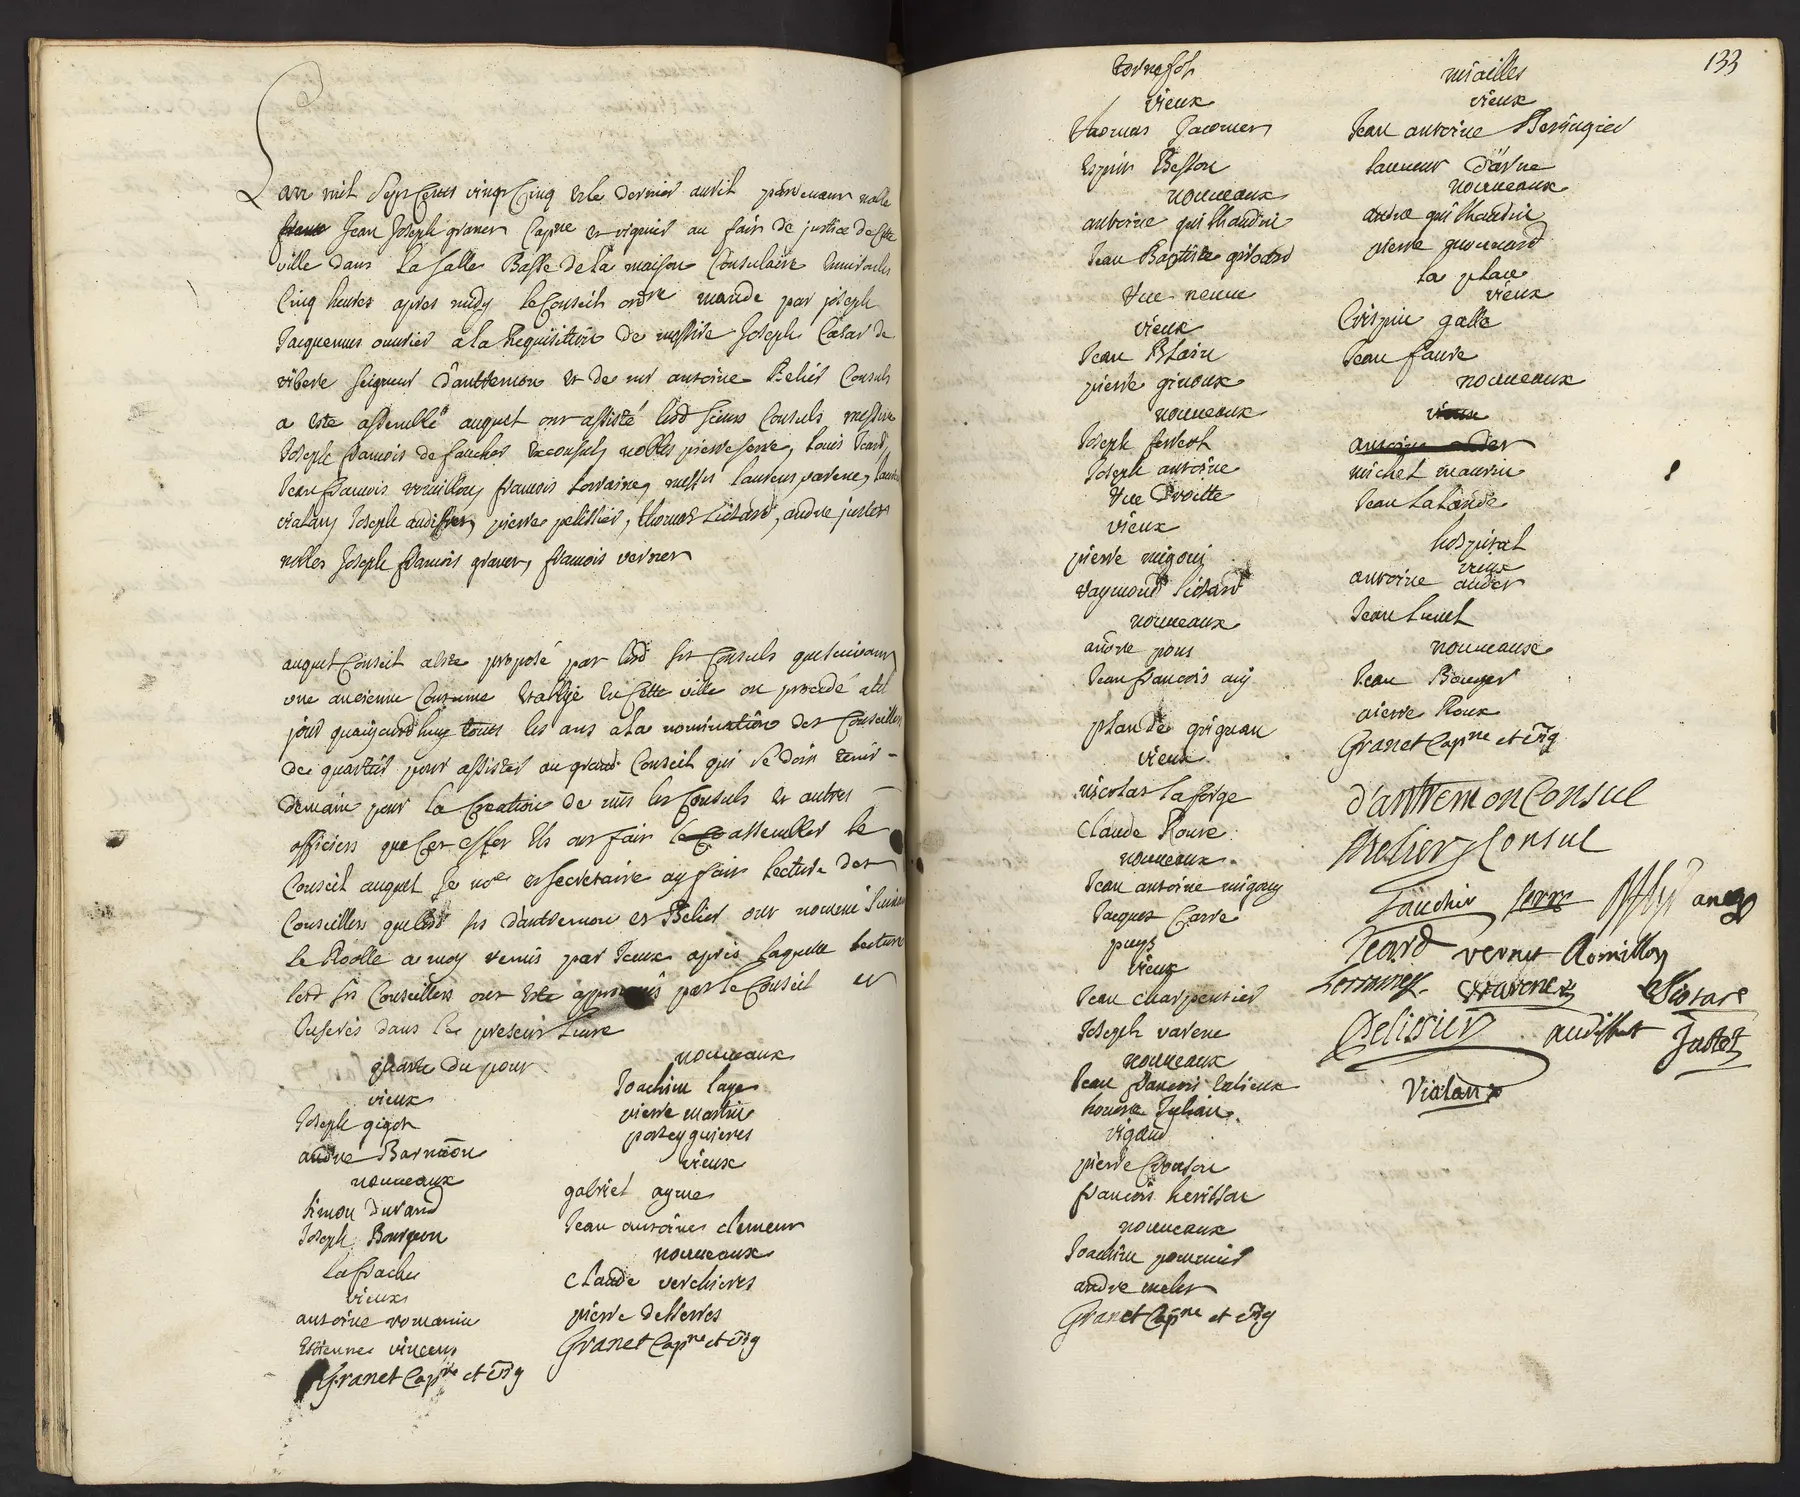 Lan mil sept Cents vingt Cinq & le dernier avril pardevant noble
Jean Joseph granet Cap.ne et viguier au fait de justice de cette
ville dans la salle Basse de la maison Consulaire environ les
Cinq heures apres midy le Conseil ord.re mandé par joseph
Jacquemus ouvrier a la Requisition de messire Joseph Cesar de
vibere seigneur d'antremon et de me antoine Relier Consuls
a este assemblé auquel ont assisté lesd sieurs Consuls messire
Joseph francois de faucher Exconsul, nobles pierre serre, louis Icard,
Jean francois romillon, francois Lorraine, messrs laurens varene,
vialan, Joseph audiffret, pierre pelissier, thomas Liotard, andre justet
nobles Joseph francois granet, francois vernet
auquel Conseil a este proposé par lesd srs Consuls que suivant
une ancienne Coutume Establie En Cette ville on procede a tel
jour quaujourdhuy tous les ans a la nomination des Conseillers
de quartier pour assister au grand Conseil qui se doit tenir
demain pour la Creation de mrs les Consuls et autres
officiers que Cet effet Ils ont fait assembler le
Conseil auquel Je no.re et secretaire ay fait lecture des
Conseillers que lesd srs d'antremon et Relier ont nommé suivant
le Roolle a moy remis par Iceux apres laquelle lecture
lesd srs Conseillers ont este approuvés par le Conseil et
Inserés dans le present livre
quarte du pour
vieux
Joseph gigot
andre
nouveaux
simon durand
Joseph Bourguen
la frache
vieux
antoine romanin
Estienne vincens
Granet Cap.ne et Vig
nouveaux
Joachim laye
pierre martin
porteyguieres
vieux
gabriel ayme
Jean antoine clemens
nouveaux
Claude verchieres
pierre desserres
Granet Cap.ne et Vig
133
vieux
thomas Jacomet
Espirit Besson
nouveaux
antoine guilhaudin
Jean Baptiste girard
rue neuve
vieux
Jean Blain
pierre giroux
nouveaux
Joseph
Joseph antoine
rue droitte
vieux
pierre migoui
raymond liotard
nouveaux
andre pons
Jean francois aiy
plan de grignan
vieux
nicolas laforge
Claude Roure
nouveaux
Jean antoine migouy
Jacques Carre
puys
vieux
Jean charpentier
Joseph varene
nouveaux
Jean francois calieux
honore Julian
vigaud
pierre Crouson
francois herisson
nouveaux
Joachim pommier
andre
Granet Cap.ne et Vig
miailles
vieux
Jean antoine Beringier
laurens d'arne
nouveaux
andre guilhaudin
pierre
la place
vieux
Crispin galle
Jean faure
nouveaux
vieux
antoine auder
michel maurin
Jean Lalande
hospital
vieux
antoine auder
Jean lunel
nouveaux
Jean Bouyer
pierre Roux
Granet Cap.ne et Vig
d'antremon Consul
Relier Consul
faucher serre
Icard vernet Romillon
Lorraine varene Liotard
Pelissier audiffret Justet
Vialan